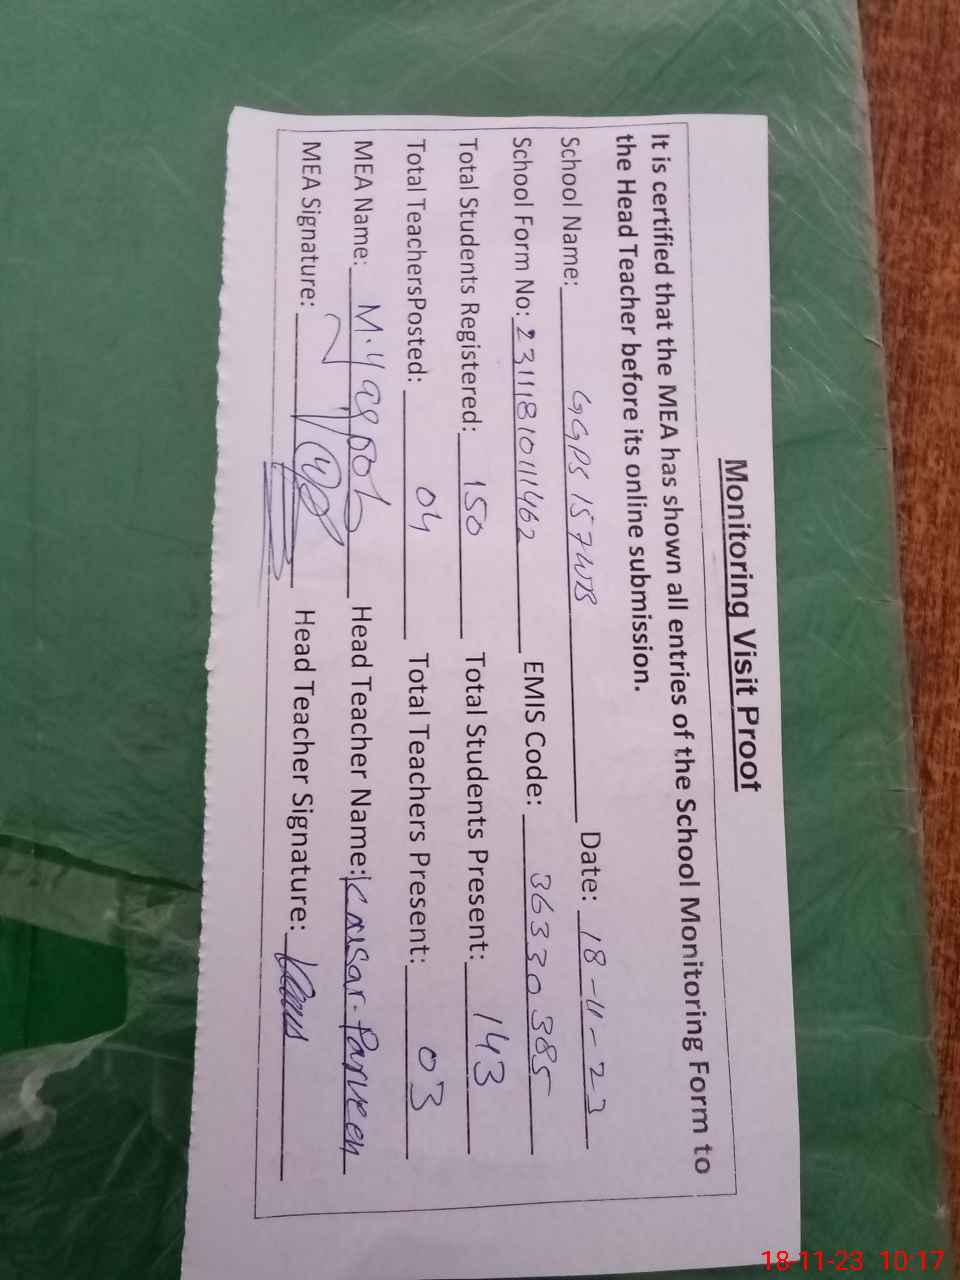 Monitoring Visit Proof
It is certified that the MEA has shown all entries of the School Monitoring Form to
the Head Teacher before its online submission.
School Name: GGPS 157WB Date: 18-11-23
School Form No: 2311181011462 EMIS Code: 36330385
Total Students Registered: 150 Total Students Present: 143
Total TeachersPosted: 04 Total Teachers Present: 03
MEA Name: M. Yaqoob Head Teacher Name: Kaisar. Parveen
MEA Signature: Head Teacher Signature:
18-11-23 10:17